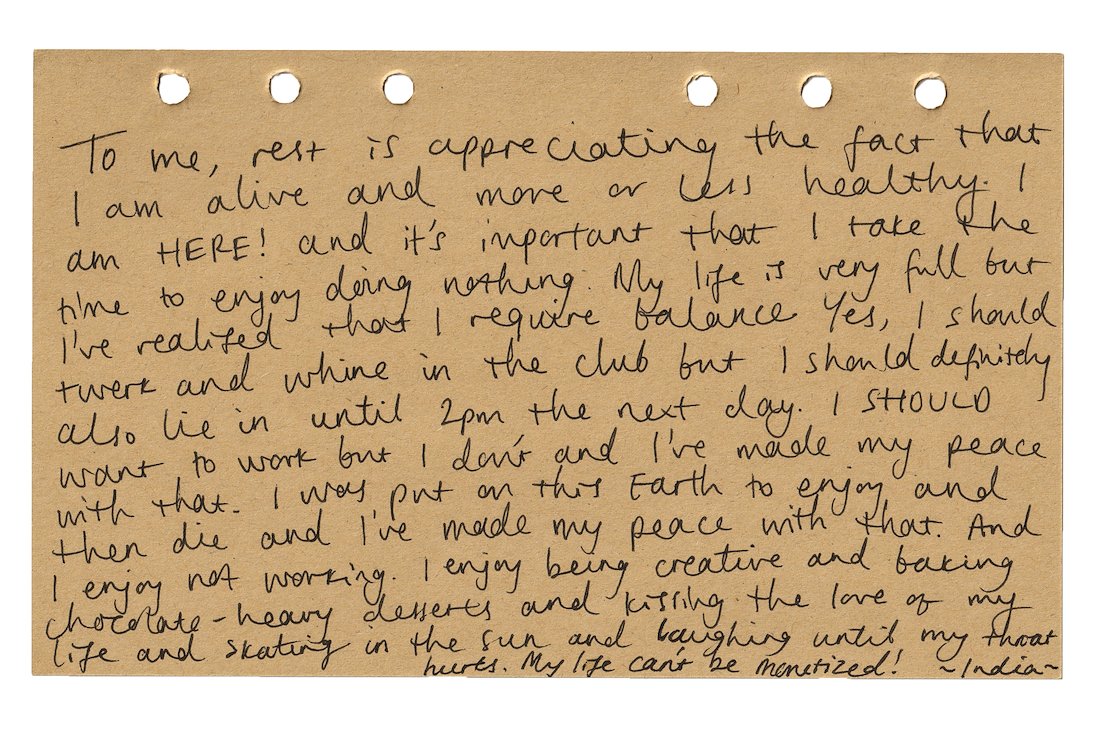 To me, rest is appreciating the fact that
I am alive and more or less healthy. I
am HERE! and it's important that I take the
time to enjoy doing nothing. My life is very full but
I've realised that I require balance. Yes, I should
twerk and whine in the club but I should definitely
also lie in until 2pm the next day. I SHOULD
want to work but I don't and I've made my peace
with that. I was put on this Earth to enjoy and
then die and I've made my peace with that. And
I enjoy not working. I enjoy being creative and baking
chocolate-heavy desserts and kissing the love of my
life and skating in the sun and laughing until my throat
hurts. My life can't be monetized! ~India~